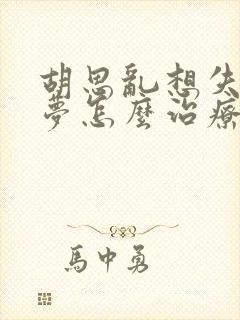 胡思亂想失
夢怎麼治療
馬中勇